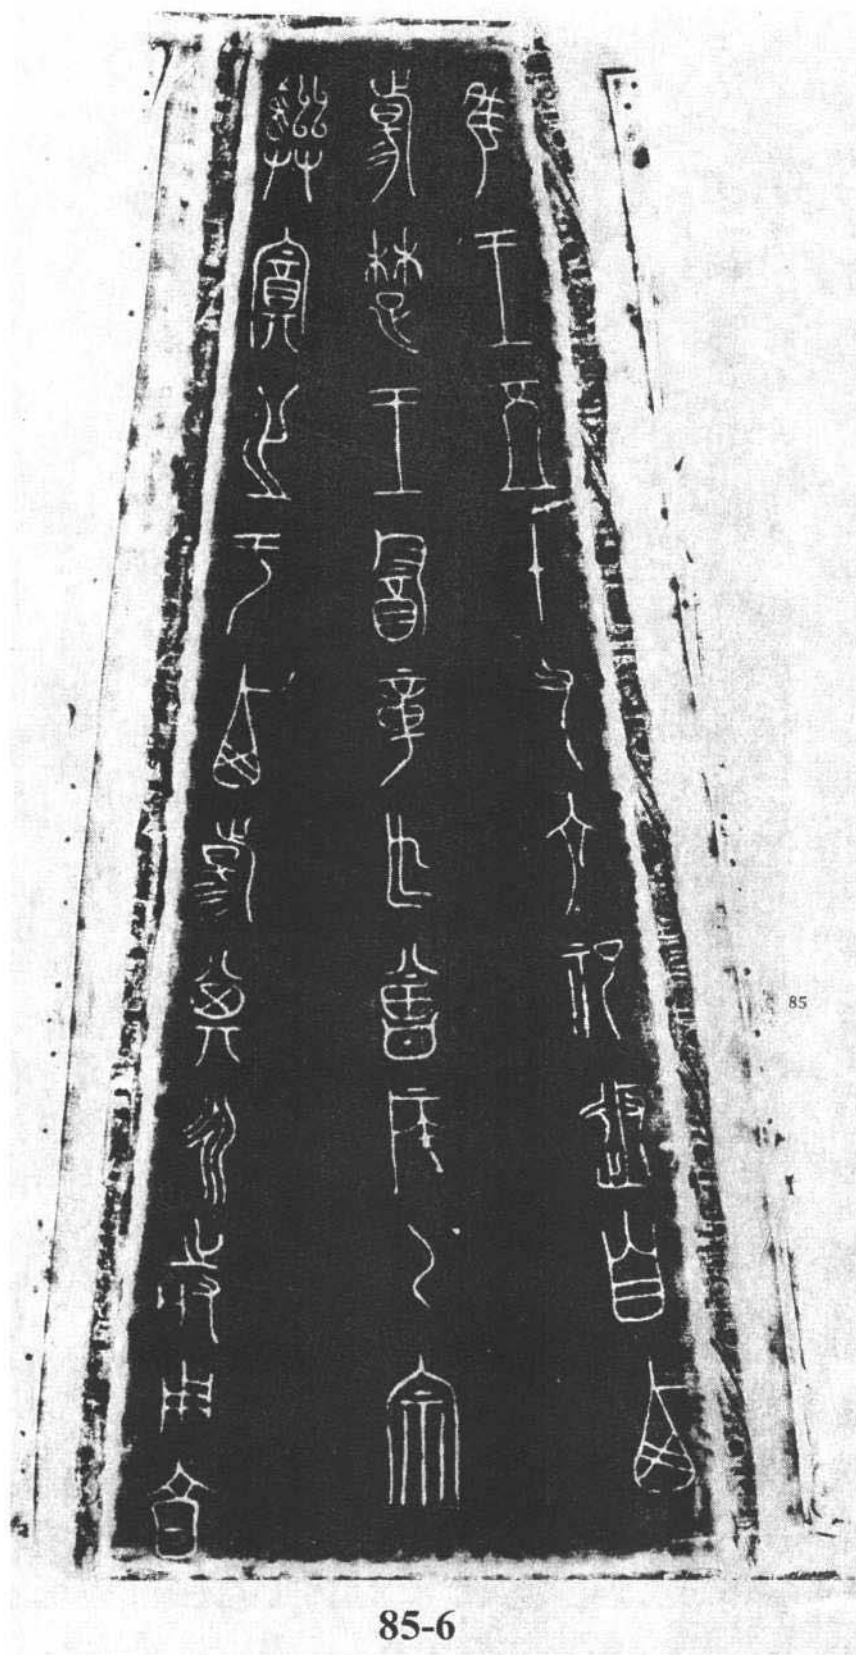 隹王五十又六祀返自西
昜楚王酓章乍曾侯乙宗
彝奠之于西昜其永持用享
85
85-6